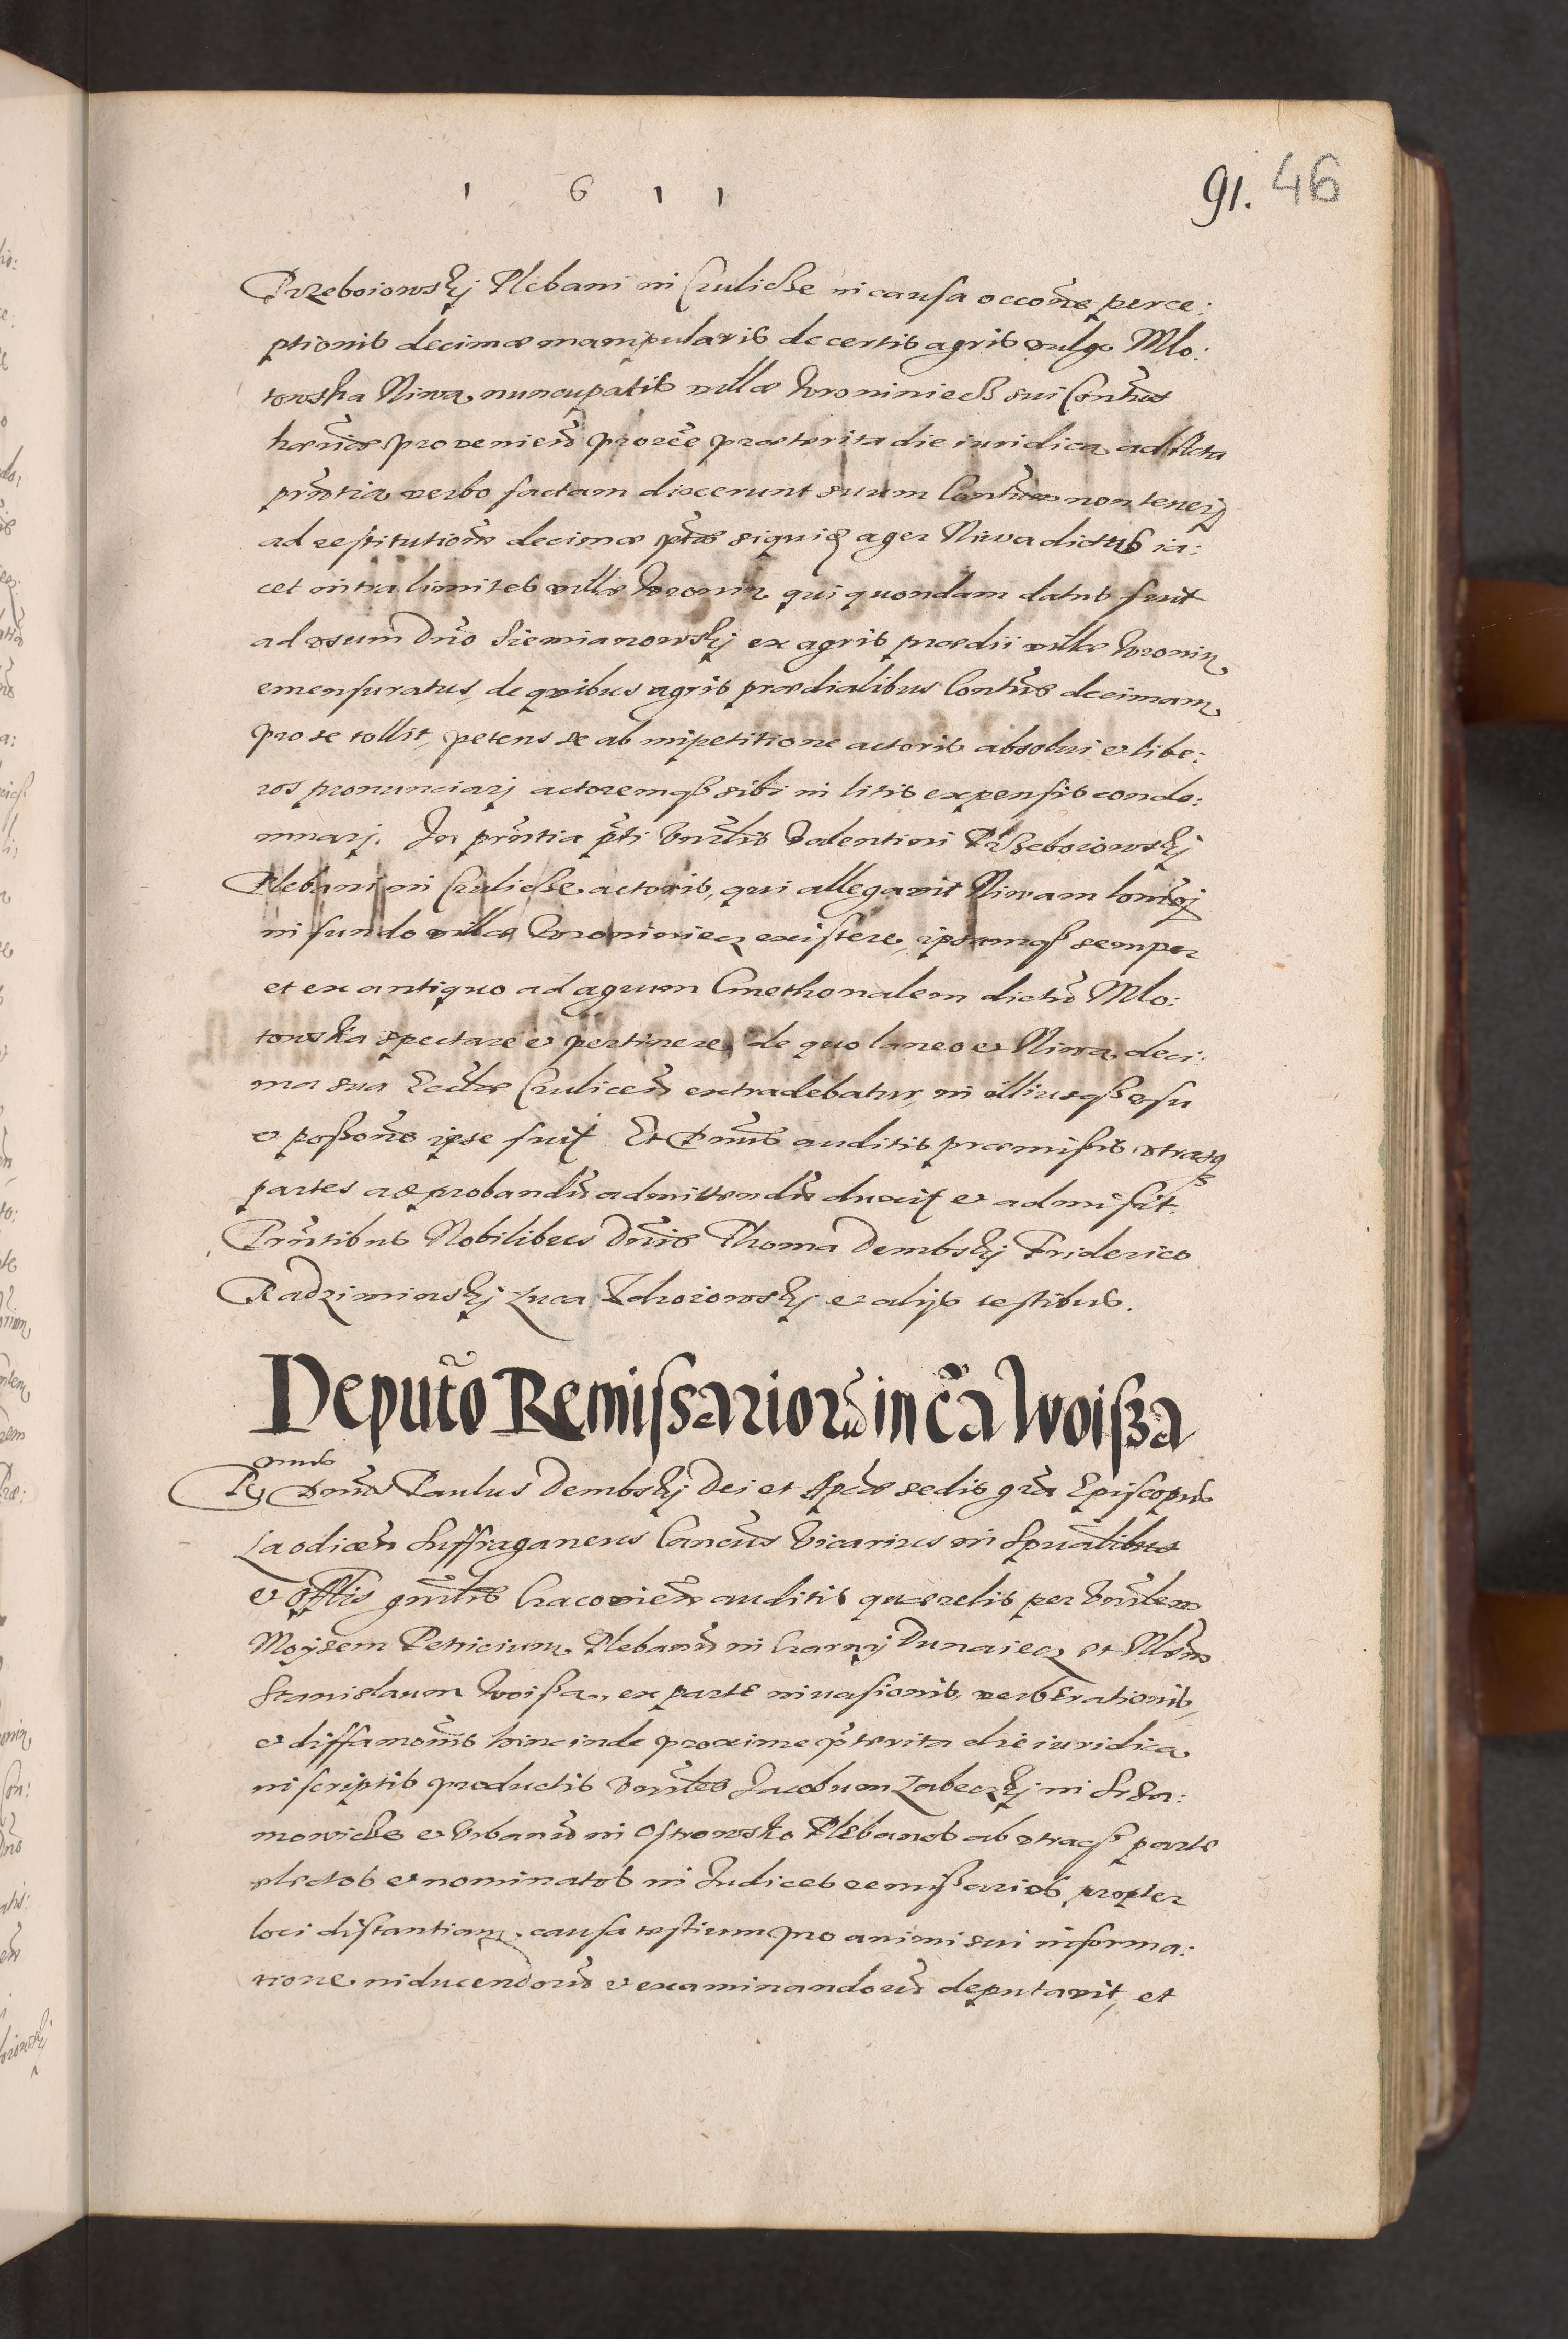 1 6 1 1
91. 46
Przeboiowskj Plebani in Czulicze in causa occone perce:
ptionis decimæ manipularis de certis agris vulgo Mlo:
towska Niwa nuncupatis villæ Wroniniecz sui
provenien præterita die iuridica ad Acta
prntia verbo factam dixerunt suum non tenerj
ad restitutione decimæ ptæ siquid ager Niwa dictus ia:
cet intra limites villæ Wronin qui quondam datus fuit
ad vsum Dno Siemianowskj ex agris prædii villæ Wronin
emensuratus, de quibus agris prædialibus decimam
pro se tollit, petens se ab impetitione actoris absolui et libe:
ros pronunciarj actoremqß sibi in litis expensis conde:
mnarj. In prntia pti Vnrlis Valentini Przeboiowskj
Plebani in Czulicze actoris, qui allegavit Niwam
in fundo villæ Wroniniecz existere, ipsamqß semper
et ex antiquo ad agrum Cmethonalem dictu Mlo:
towska spectare et pertinere, de quo laneo et Niwa deci:
ma sua Eccliæ Czulicen extradebatur, in illiusqß vsu
et possone ipse fuit Et Dnus auditis præmissis vtrasqß
partes ad probandu admittendu duxit et admisit.
Prntibus Nobilibus Dnis Thoma Dembskj Friderico
Radziminskj Luca Zdroiowskj et alijs testibus.
Deputo Remissarioru in ca Woisza
Dnus Paulus Dembskj Dei et Aplicæ sedis gra Episcopus
Laodicen Suffraganeus Cancus Vicarius in Spualibus
et Offlis gnrlis Cracovien auditis querelis per Vnrlem
Moysem Petricium Plebanu in Czarnj Dunaiecz et Nblem
Stanislaum Woisza, ex parte invasionis, verberationis,
et diffamonis hincinde proxime pterita die iuridica
in scriptis productis Vnrles Jacobum Zabeczkj in Siza:
mowicze et Vrbanu in Ostrowsko Plebanos ab vtraqß parte
electos et nominatos in Judices remissarios, propter
loci distantiam, causa testium pro animi sui informa:
tione inducendoru et examinandoru deputavit, et